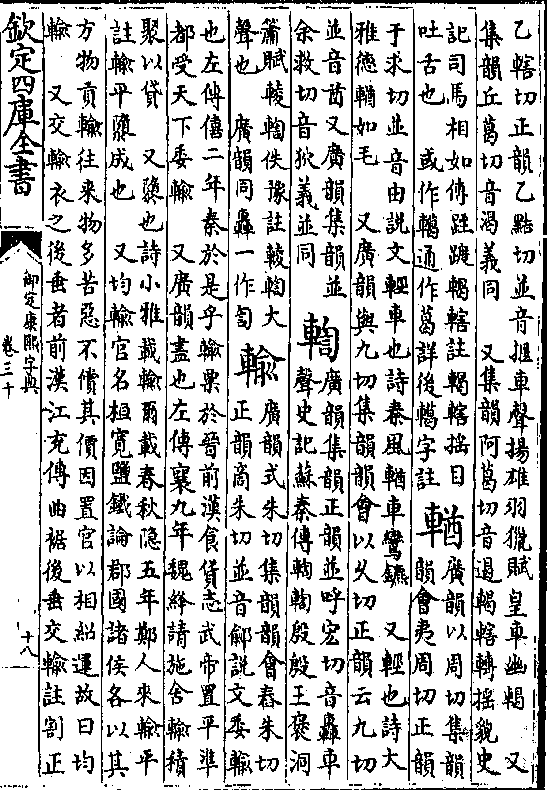 乙轄切正韻乙點切並音揠車聲揚雄羽獵賦皇車幽輵 又
集韻丘葛切音渴義同 又集韻阿葛切音遏輵轄轉搖貌史
記司馬相如傳跮踱輵轄註輵轄搖目
吐舌也 或作轕通作葛詳後轕字註
輶
廣韻以周切集韻
韻會夷周切正韻
于求切並音由說文輕車也詩秦風輶車鸞鑣 又輕也詩大
雅德輶如毛 又廣韻與九切集韻韻會以久切正韻云九切
並音酉又廣韻集韻並
余救切音狖義並同
輷
廣韻集韻正韻並呼宏切音轟車
聲史記蘇秦傳輷輷殷殷王褒洞
簫賦輘輷佚豫註輘輷大
聲也 廣韻同轟一作訇
輸
廣韻式朱切集韻韻會舂朱切
正韻商朱切並音鄃說文委輸
也左傳僖二年秦於是乎輸粟於晉前漢食貨志武帝置平準
都受天下委輸 又廣韻盡也左傳襄九年魏絳請施舍輸積
聚以貸 又隳也詩小雅載輸爾載春秋隱五年鄭人來輸平
註輸平隳成也 又均輸官名桓寬鹽鐵論郡國諸侯各以其
方物貢輸往來物多苦惡不償其價因置官以相紹運故曰均
輸 又交輸衣之後垂者前漢江充傳曲裾後垂交輸註割正
欽定四庫全書
御定康熙字典
卷三十
十八